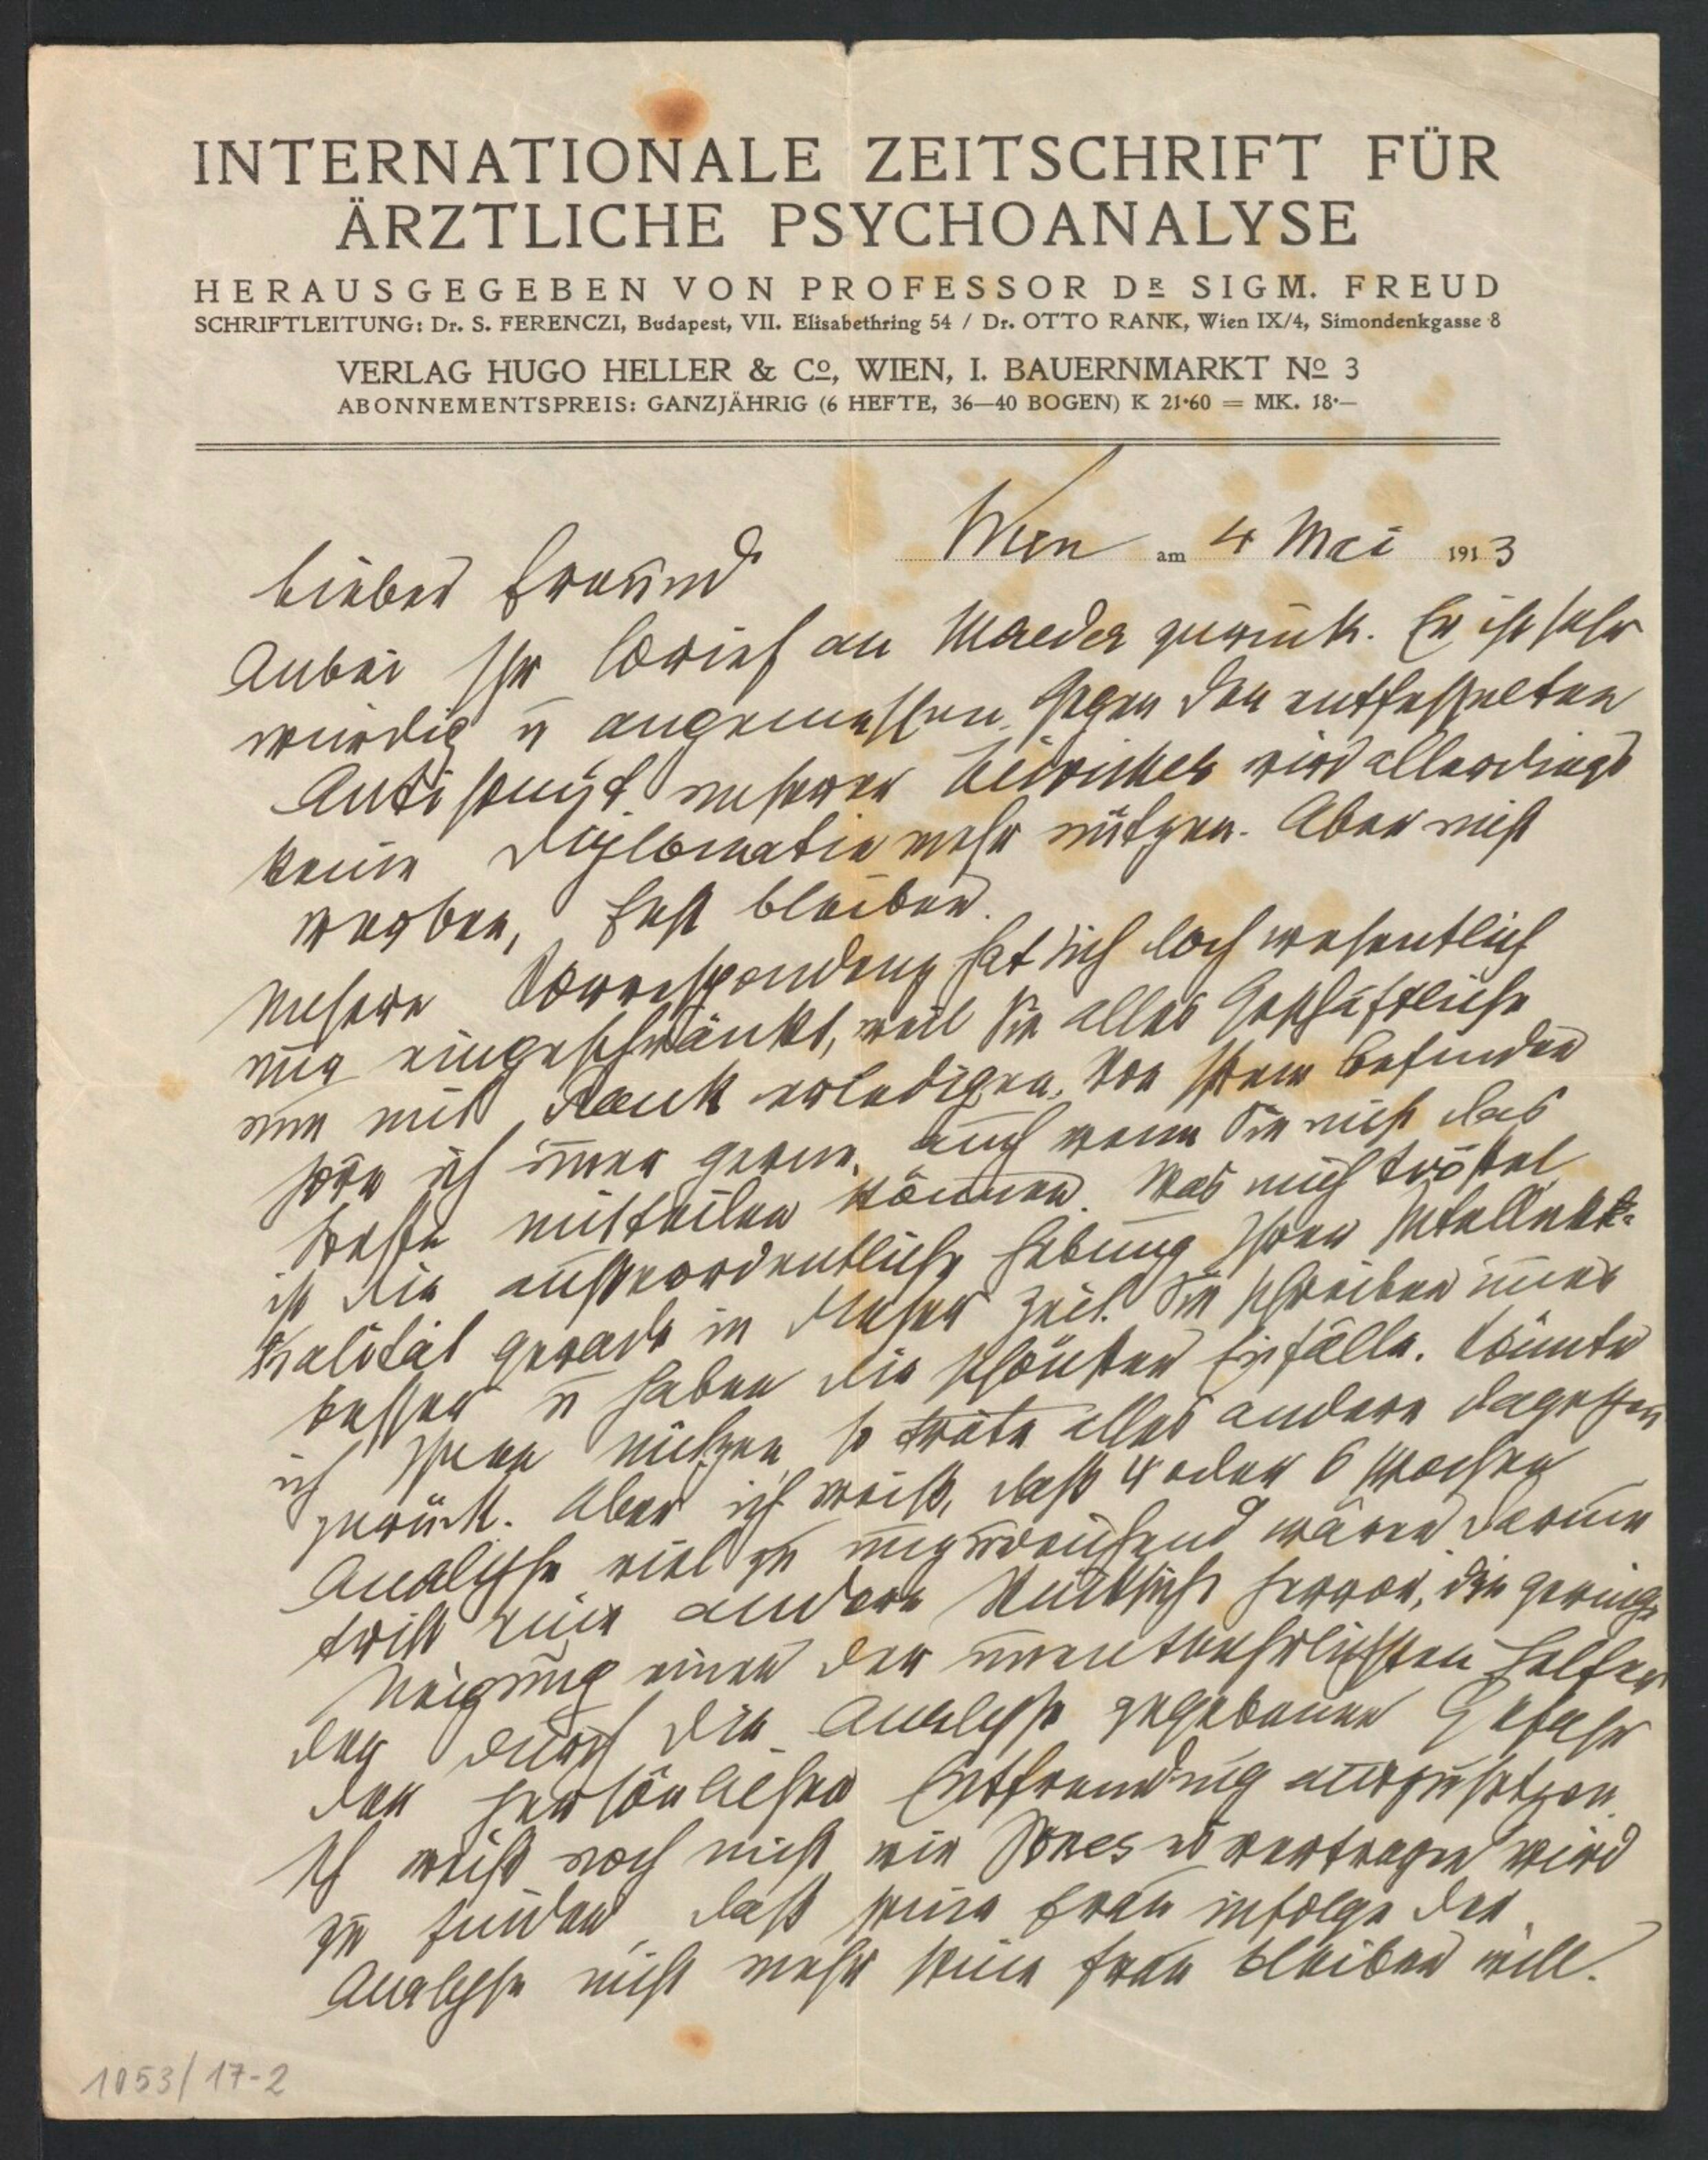 INTERNATIONALE ZEITSCHRIFT FÜR
ÄRZTLICHE PSYCHOANALYSE
HERAUSGEGEBEN VON PROFESSOR DR SIGM. FREUD
SCHRIFTLEITUNG: Dr. S. FERENCZI, Budapest, VII. Elisabethring 54 / Dr. OTTO RANK, Wien IX/4, Simondenkgasse 8
VERLAG HUGO HELLER & Co, WIEN, I. BAUERNMARKT No 3
ABONNEMENTSPREIS: GANZJÄHRIG (6 HEFTE, 36—40 BOGEN) K 21·60 = MK. 18·—
Wien am 4 Mai 1913
Lieber Freund
Anbei Ihr Brief an Maeder zurück. Er ist sehr
würdig u angemessen. Gegen den entfesselten
Antisemit unserer Züricher wird allerdings
keine Diplomatie mehr nützen. Aber nicht
werben, fest bleiben.
Unsere Correspondenz hat sich doch wesentlich
nur eingeschränkt, weil Sie alles Geschäftliche
nun mit Rank erledigen. Von Ihrem Befinden
höre ich immer gerne, auch wenn Sie nicht das
Beste mitteilen können. Was mich tröstet,
ist die außerordentliche Hebung Ihrer Intellek-
tualität gerade in dieser Zeit. Sie schreiben immer
besser u haben die schönsten Einfälle. Könnte
ich Ihnen nützen, so träte alles andere dagegen
zurück. Aber ich weiß, daß 4 oder 6 Wochen
Analyse viel zu unzureichend wären. Darum
tritt eine andere Rücksicht hervor, die geringe
Neigung einen der unentbehrlichsten Helfer
der durch die Analyse gegebenen Gefahr
der persönlichen Entfremdung auszusetzen.
Ich weiß noch nicht, wie Jones es vertragen wird
zu finden, daß seine Frau infolge der
Analyse nicht mehr seine Frau bleiben will.
1053/17-2